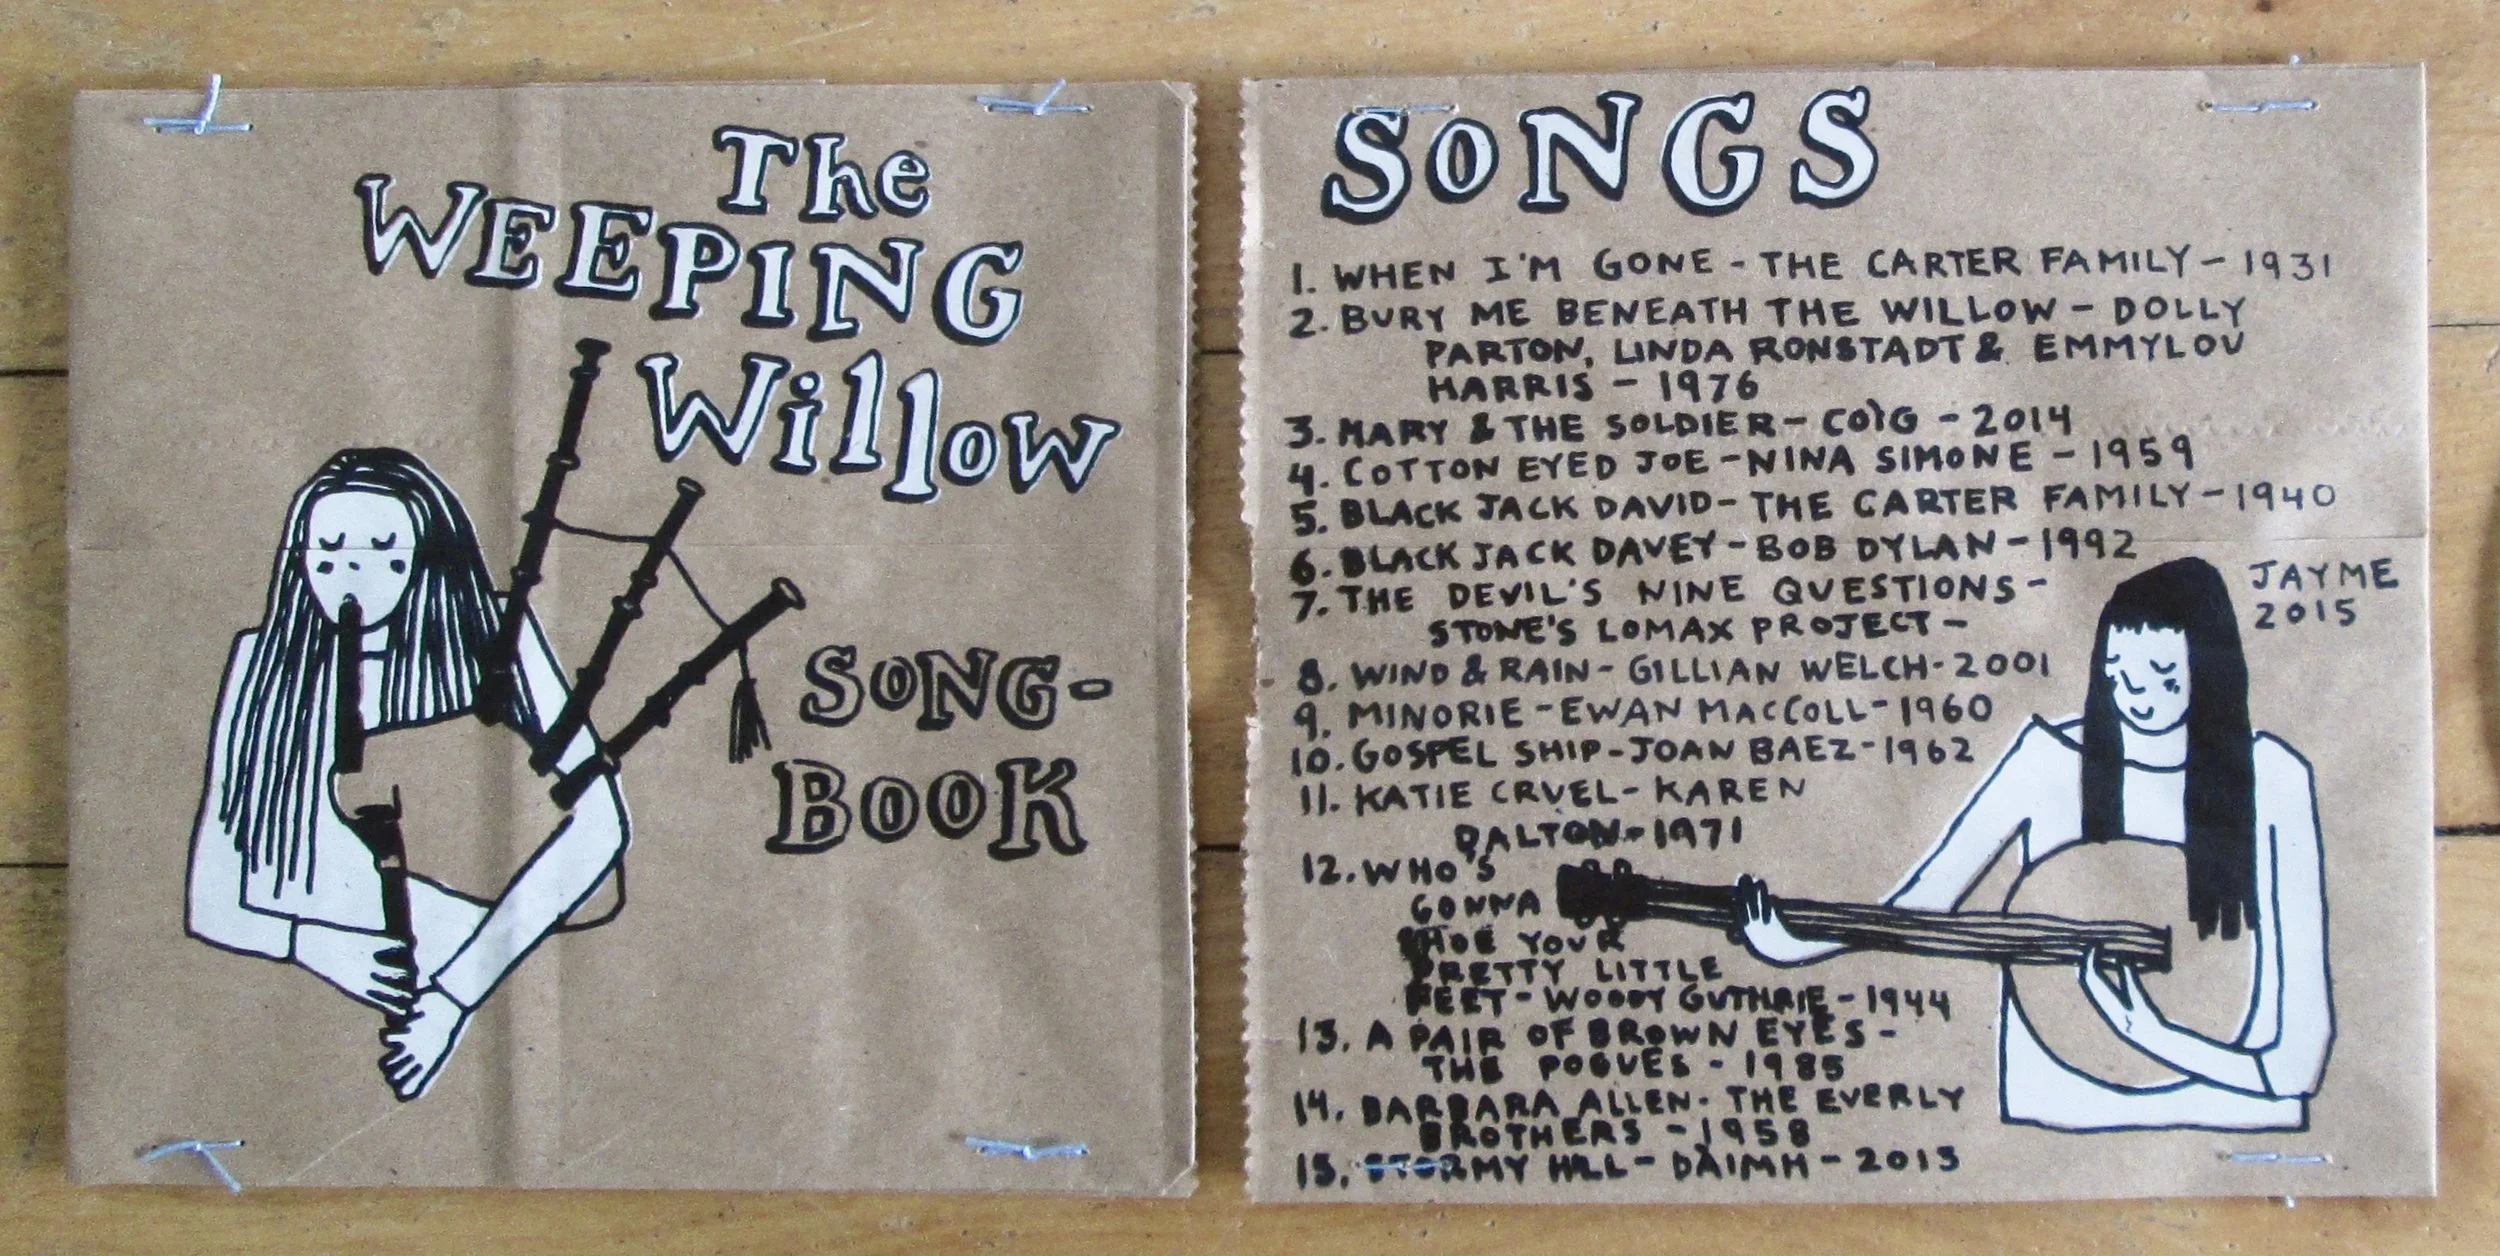 The
WEEPING
Willow
SONG-
BOOK
SONGS
1. WHEN I'M GONE - THE CARTER FAMILY - 1931
2. BURY ME BENEATH THE WILLOW - DOLLY
PARTON, LINDA RONSTADT & EMMYLOU
HARRIS - 1976
3. MARY & THE SOLDIER - CÒIG - 2014
4. COTTON EYED JOE - NINA SIMONE - 1959
5. BLACK JACK DAVID - THE CARTER FAMILY - 1940
6. BLACK JACK DAVEY - BOB DYLAN - 1992
JAYME
2015
7. THE DEVIL'S NINE QUESTIONS -
STONE'S LOMAX PROJECT -
8. WIND & RAIN - GILLIAN WELCH - 2001
9. MINORIE - EWAN MACCOLL - 1960
10. GOSPEL SHIP - JOAN BAEZ - 1962
11. KATIE CRUEL - KAREN
DALTON - 1971
12. WHO'S
GONNA
SHOE YOUR
PRETTY LITTLE
FEET - WOODY GUTHRIE - 1944
13. A PAIR OF BROWN EYES -
THE POGUES - 1985
14. BARBARA ALLEN - THE EVERLY
BROTHERS - 1958
15. STORMY HILL - DÀIMH - 2013